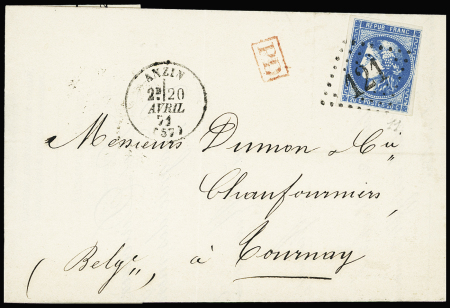 REPUB FRANC
PD
121
ANZIN
2E 20
AVRIL
71
(57)
Messieurs Dumon & Cie
Chaufourniers,
(Belge", à Tournay